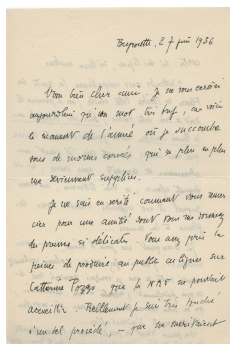 Beyrouth, 27 juin 1936
Mon bien cher ami. Je ne vous écrirai
aujourd'hui qu'un mot très bref, car voici
le moment de l'année où je succombe
sous de énormes corvées qui de plus en plus
me deviennent supplice.
Je ne sais en vérité comment vous remer
cier pour une amitié dont vous me donnez
des preuves si délicates. Vous avez pris la
peine de produire au public ces lignes sur
Catherine Pozzi que la NRF ne pouvait
accueillir. Réellement je suis très touché
d'un tel procédé, — que ne méritaient